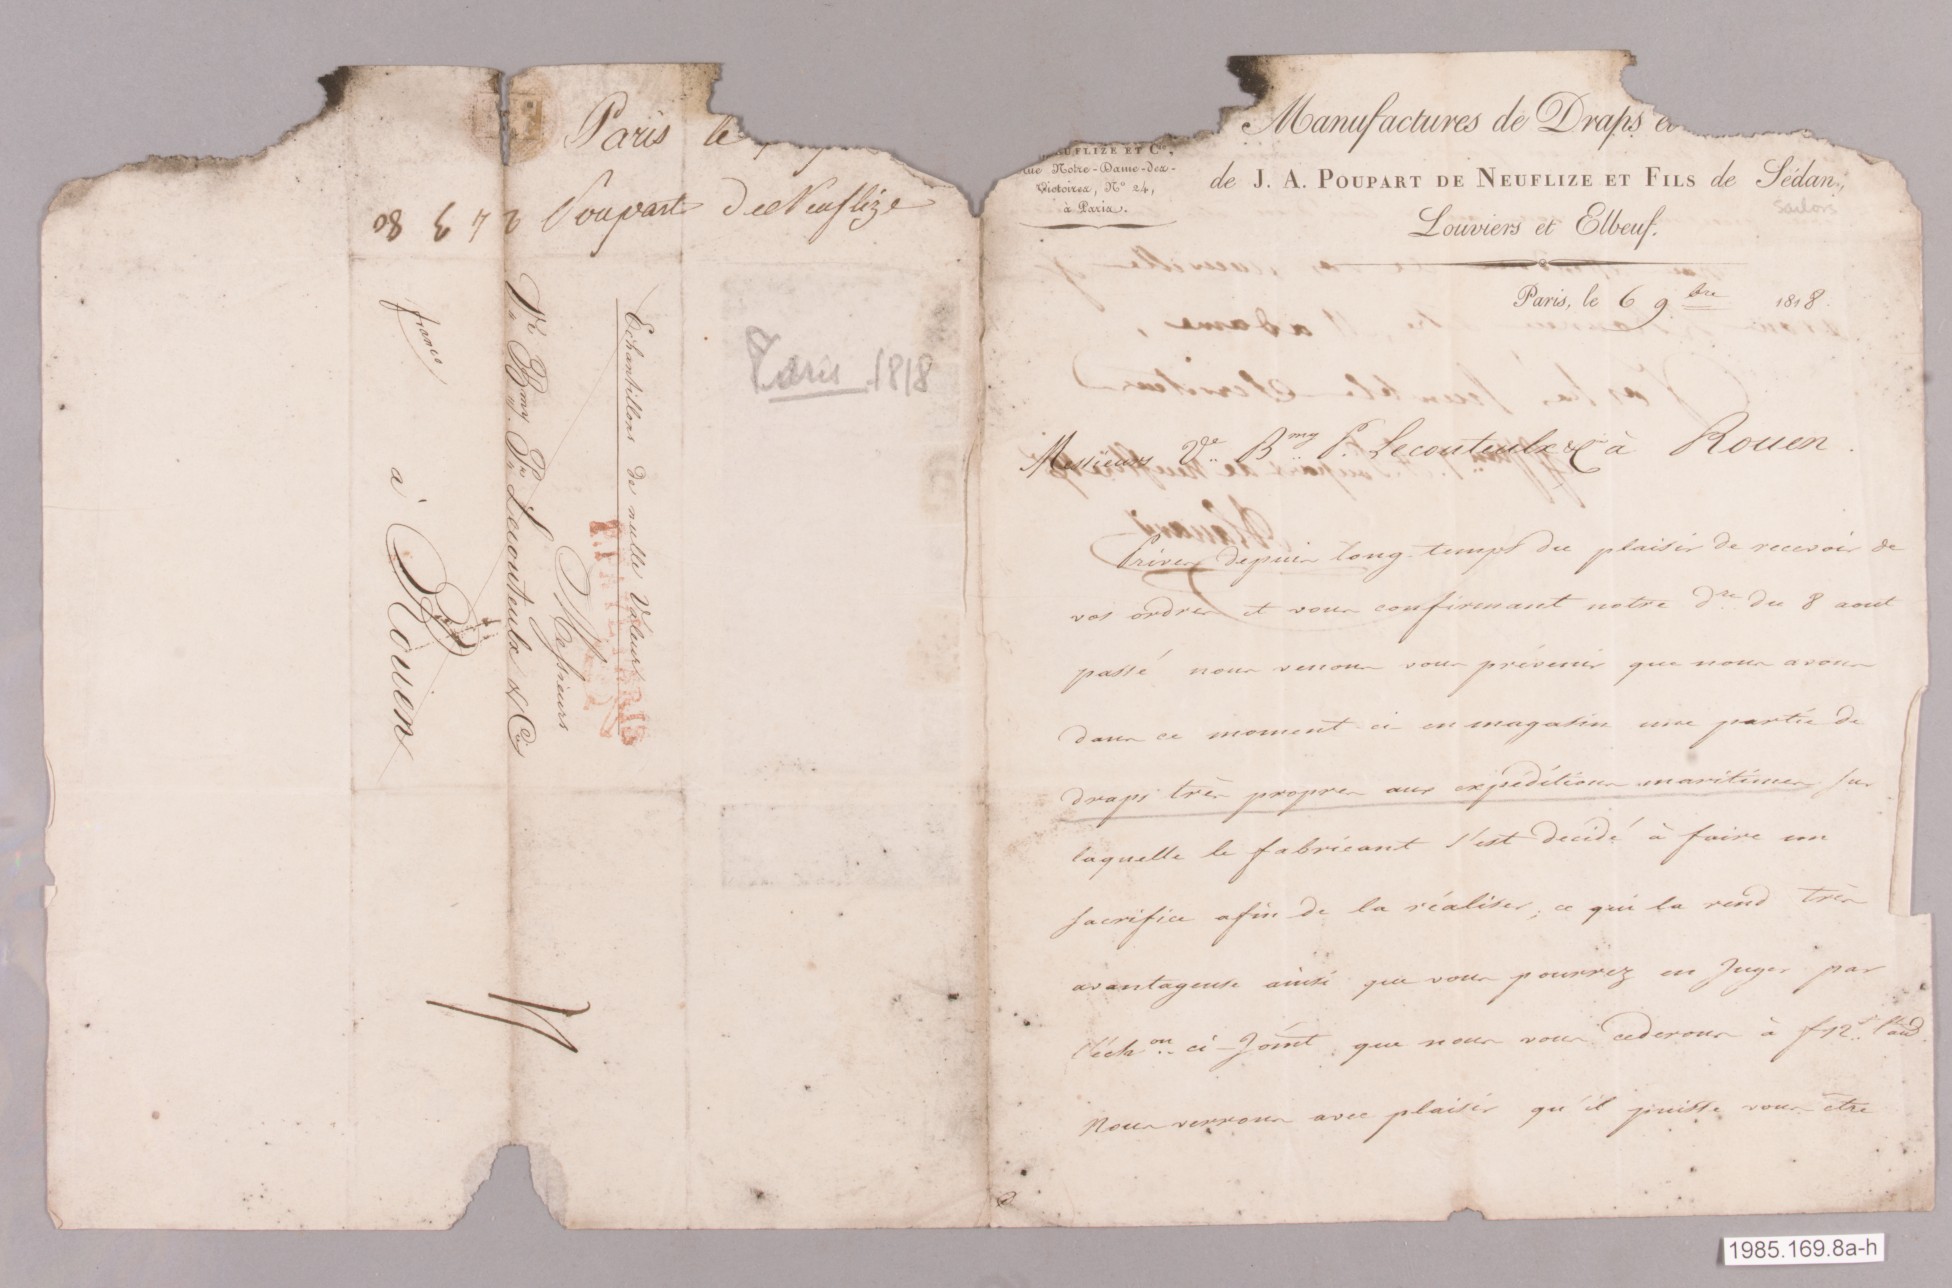 Paris le
Poupart DeNeuflize
franco
Echantillons de nulle Valeur
Messieurs
Ve. Bmy. Pre. Lecouteulx & Cie
à
Rouen
Paris 1818
NEUFLIZE ET Cie,
rue Notre-Dame-des-
Victoires, N° 24,
à Paris.
Manufactures de Draps et
de J. A. POUPART DE NEUFLIZE ET FILS de Sédan,
sailors
Louviers et Elbeuf.
Paris, le 6 9bre 1818.
Messieurs Ve. Bmy P. Lecouteulx & Cie à Rouen.
Privés depuis long-temps du plaisir de recevoir de
vos ordres et vous confirmant notre dre du 8 aout
passé nous venons vous prévenir que nous avons
dans ce moment ci en magasin une partie de
draps très propres aux expéditions maritimes sur
laquelle le fabricant s'est decidé à faire un
sacrifice afin de la réaliser; ce qui la rend très
avantageuse ainsi que vous pourrez en Juger par
l'échon ci-Joint que nous vous cederons à f 12
Nous verrons avec plaisir qu'il puisse vous être
1985.169.8a-h